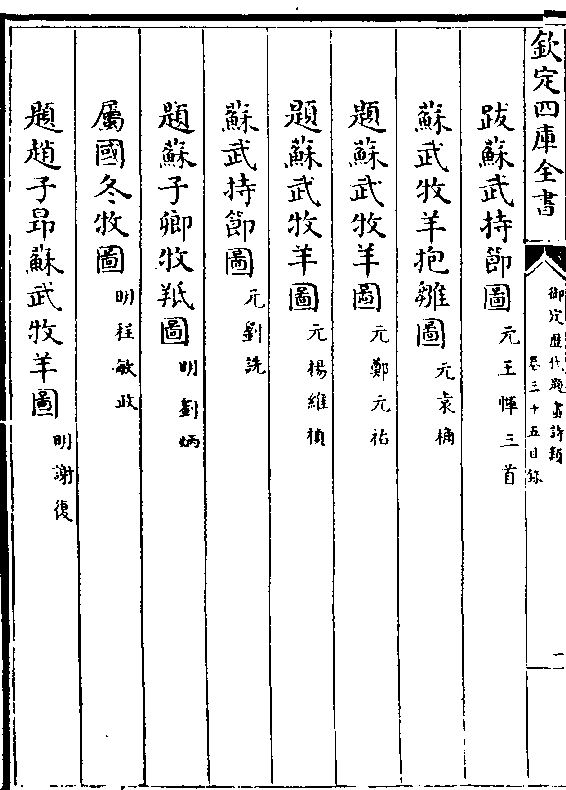 欽定四庫全書
御定歷代題畫詩類
卷三十五目錄
一
跋蘇武持節圖 元王惲三首
蘇武牧羊抱雛圖 元袁桷
題蘇武牧羊圖 元鄭元祐
題蘇武牧羊圖 元楊維楨
蘇武持節圖 元劉詵
題蘇子卿牧羝圖 明劉炳
屬國冬牧圖 明程敏政
題趙子昂蘇武牧羊圖 明謝復